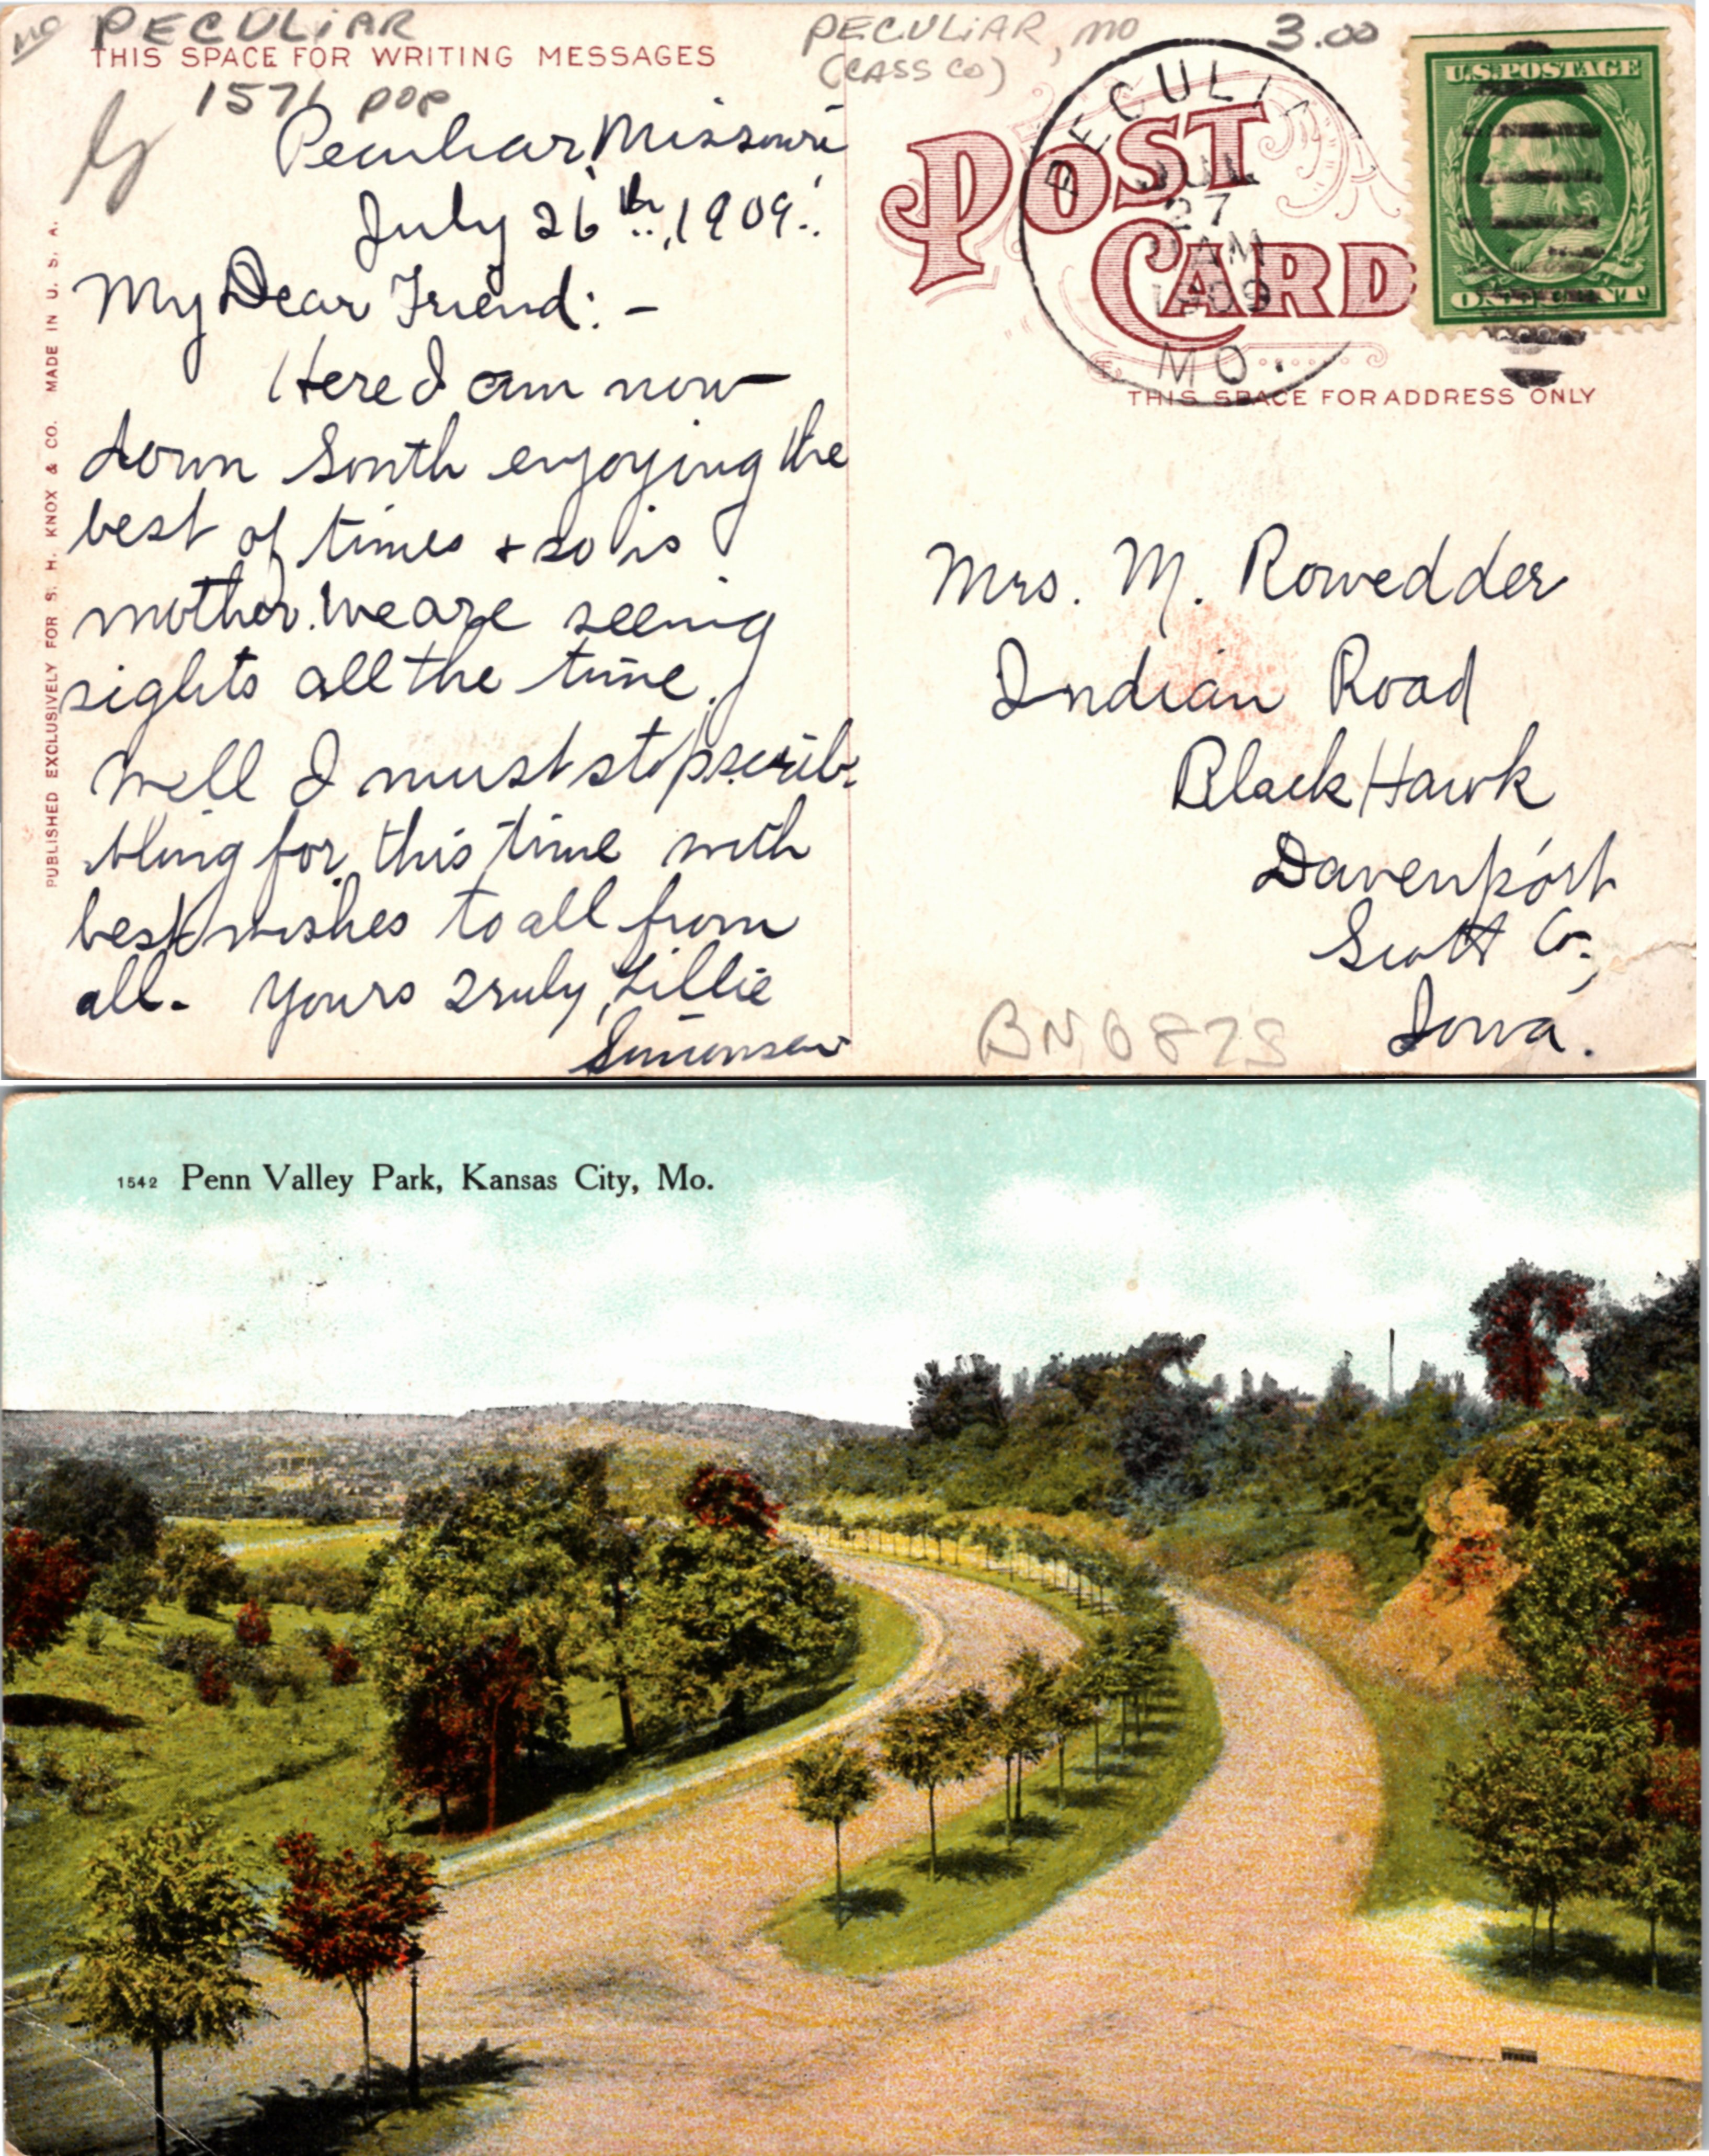 MO PECULIAR
THIS SPACE FOR WRITING MESSAGES
1571 pop
Peculiar, Missouri
July 26th, 1909.
My Dear Friend: -
Here I am now
down South enjoying the
best of times + so is
mother. We are seeing
sights all the time.
Well I must stop scrib-
bling for this time with
best wishes to all from
all. Yours Truly, Lillie
Simonsen
PUBLISHED EXCLUSIVELY FOR S. H. KNOX & CO. MADE IN U. S. A.
PECULIAR, MO
(CASS CO)
3.00
POST
CARD
PECULIA
JUL
27
AM
1909
MO.
U.S.POSTAGE
ONE CENT
THIS SPACE FOR ADDRESS ONLY
Mrs. M. Rowedder
Indian Road
Black Hawk
Davenport
Scott Co.,
Iowa.
BN0875
1542 Penn Valley Park, Kansas City, Mo.